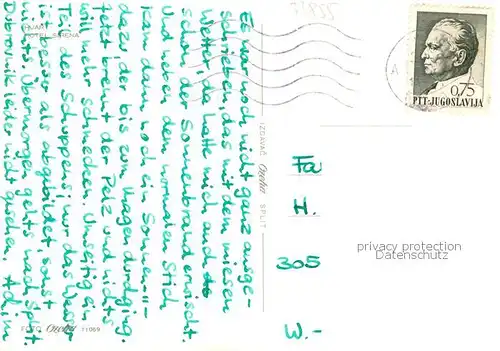 HVAR
HOTEL SIRENA
Es war noch nicht ganz ausge-
schrieben, das mit dem miesen
Wetter, da hatte mich auch
schon der Sonnenbrand erwischt.
Und neben dem normalen Stich
kam dann noch ein Sonnen-"-
dazu, der bis zum Magen durchging.
Jetzt brennt der Pelz und nichts
will mehr schmecken. Umseitig ein
Teil des Schuppens, nur das Wasser
ist besser als abgebildet, sonst
nichts. Übermorgen gehts nach Split.
Dubrovnik leider nicht gesehen. Achim
FOTO 11069
IZDAVAČ SPLIT
0,75
PTT-JUGOSLAVIJA
A
Fa
H.
305
W.-
privacy protection
Datenschutz